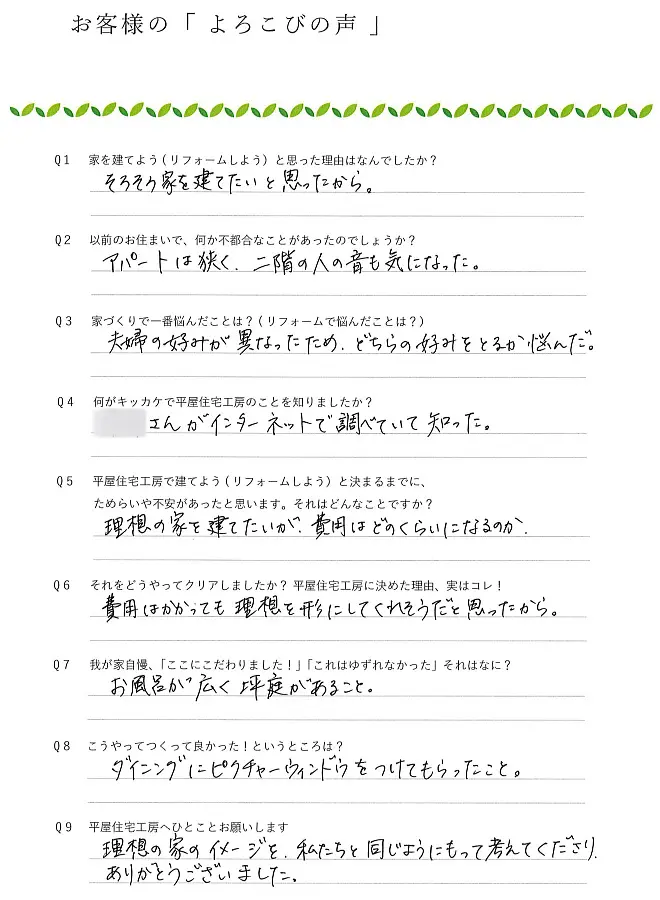 お客様の「 よろこびの声 」
Q1 家を建てよう(リフォームしよう)と思った理由はなんでしたか?
そろそろ家を建てたいと思ったから。
Q2 以前のお住まいで、何か不都合なことがあったのでしょうか?
アパートは狭く、二階の人の音も気になった。
Q3 家づくりで一番悩んだことは?(リフォームで悩んだことは?)
夫婦の好みが異なったため、どちらの好みをとるか悩んだ。
Q4 何がキッカケで平屋住宅工房のことを知りましたか?
さんがインターネットで調べていて知った。
Q5 平屋住宅工房で建てよう(リフォームしよう)と決まるまでに、
ためらいや不安があったと思います。それはどんなことですか?
理想の家を建てたいが、費用はどのくらいになるのか、
Q6 それをどうやってクリアしましたか? 平屋住宅工房に決めた理由、実はコレ!
費用はかかっても理想を形にしてくれそうだと思ったから。
Q7 我が家自慢、「ここにこだわりました!」「これはゆずれなかった」それはなに?
お風呂が広く坪庭があること。
Q8 こうやってつくって良かった!というところは?
ダイニングにピクチャーウィンドウをつけてもらったこと。
Q9 平屋住宅工房へひとことお願いします
理想の家のイメージを、私たちと同じようにもって考えてくださり、
ありがとうございました。